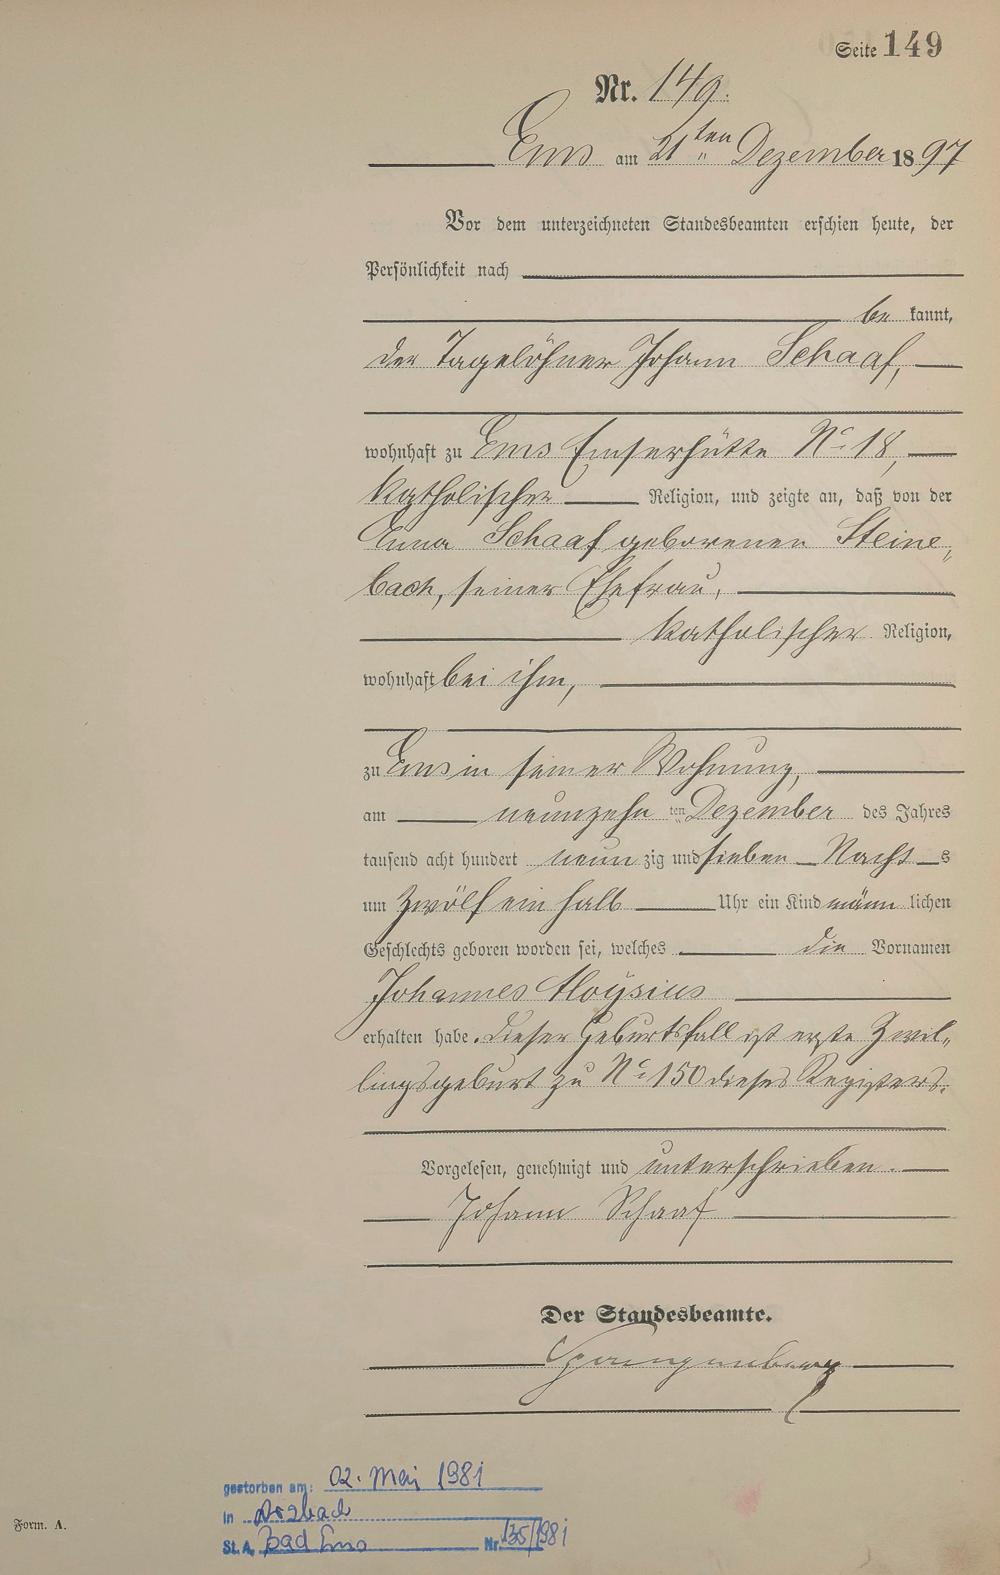 Seite 149
Nr. 149.
Ems am 21ten Dezember 1897
Vor dem unterzeichneten Standesbeamten erschien heute, der
Persönlichkeit nach
be kannt,
der Tagelöhner Johann Schaaf,
wohnhaft zu Ems Emserhütte No 18,
katholischer Religion, und zeigte an, daß von der
Anna Schaaf geborenen Steine„
bach, seiner Ehefrau,
katholischer Religion,
wohnhaft bei ihm,
zu Ems in seiner Wohnung,
am neunzehn ten Dezember des Jahres
tausend acht hundert neun zig und sieben Nacht s
um zwölf ein halb Uhr ein Kind männ lichen
Geschlechts geboren worden sei, welches die Vornamen
Johannes Aloÿsius
erhalten habe. Dieser Geburtsfall ist erste Zwil„
lingsgeburt zu No 150 dieses Registers.
Vorgelesen, genehmigt und unterschrieben.
Johann Schaaf
Der Standesbeamte.
gestorben am: 02. Mai 1981
in
St. A. Bad Ems Nr. 135/1981
Form. A.